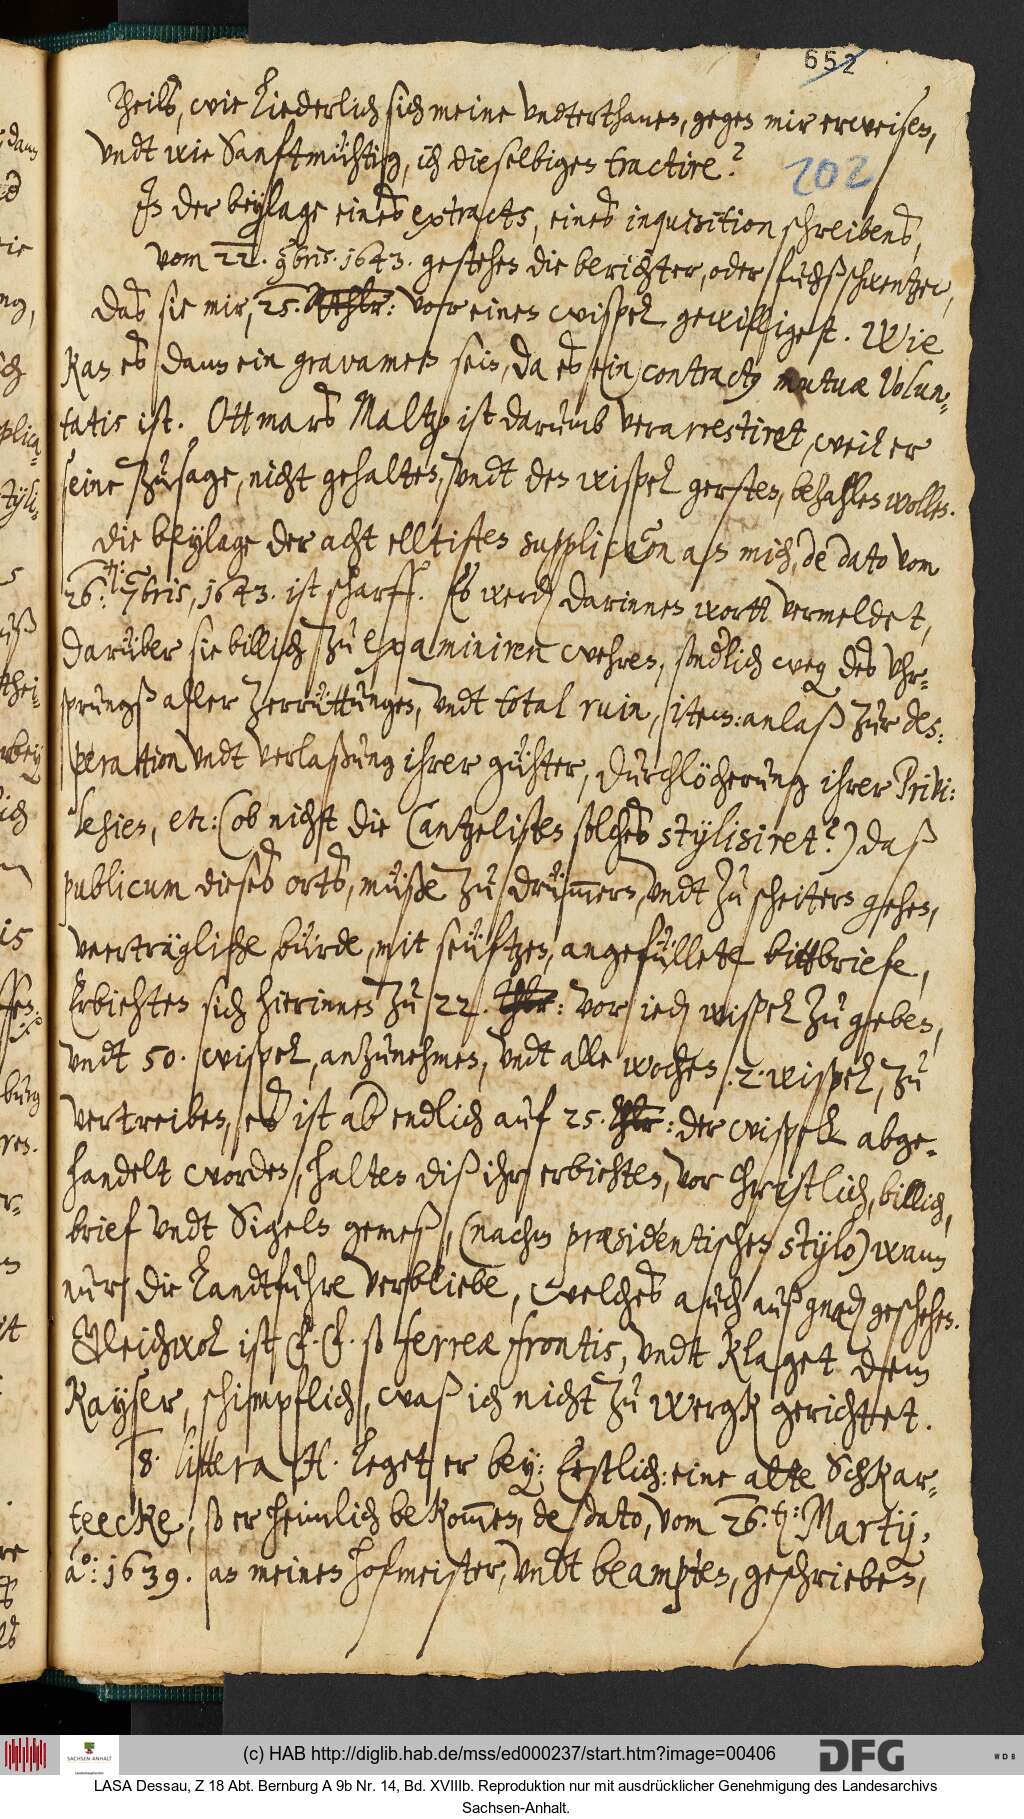 652
202
theils, wie liederlich sich meine Undterthanen, gegen mir erweisen,
undt wie Sanftmühtig, ich dieselbigen tractire?
In der beylage eines extracts, eines inquisition schreibens,
vom 22. 9bris. 1643. gestehen die berichter, oder fuchßschwentzer,
das sie mir, 25. Rthlr: vor einen wispel gewilliget. Wie
kan es dann ein gravamen sein, da es ein contractus mutuæ Volun-
tatis ist. Ottmars Maltz ist darumb verarrestiret, weil er
seine zusage, nicht gehalten, undt den wispel gersten, behalten wollen.
Die beylage der acht elltisten supplication an mich, de dato vom
26. 9bris, 1643. ist scharff. Es werden darinnen wortt vermeldet,
darüber sie billich zu examiniren wehren, sonderlich wegen des Uhr-
sprungß aller Zerrüttungen, undt total ruin, item: anlaß zur des-
peration undt verlaßung ihrer gühter, durchlöcherung ihrer Privi-
lehien, etc: (ob nicht die Cantzelisten solches stylisiret?) daß
publicum dieses orts, müße zu drümmern, undt zu scheitern gehen,
unerträgliche bürde, mit seüftzen, angefüllete bittbriefe,
Erbiehten sich hierinnen zu 22. Thlr: vor ieden wispel zu geben,
undt 50. wispel, anzunehmen, undt alle wochen .2. wispel, zu
vertreiben, es ist aber endlich auf 25. Thlr: der wispel abge-
handelt worden, halten diß ihr erbiehten, vor Christlich, billich,
brief undt Sigeln gemeß, (nach præsidentischen stylo) wann
nur die Landtfuhre verbliebe, welches auch auß gnaden geschehen.
Gleichwol ist so ferreæ frontis, undt klaget dem
Kayser, schimpflich, waß ich nicht zu wergk gerichtet.
8. littera H. leget er bey: Erstlich: eine alte Schkar-
teecke, so er heimlich bekommen, de dato, vom 26. Martij,
ao: 1639. an meinen hofmeister, undt beampten, geschrieben,
(c) HAB http://diglib.hab.de/mss/ed000237/start.htm?image=00406
SACHSEN-ANHALT
DFG
WDB
LASA Dessau, Z 18 Abt. Bernburg A 9b Nr. 14, Bd. XVIIIb. Reproduktion nur mit ausdrücklicher Genehmigung des Landesarchivs
Sachsen-Anhalt.